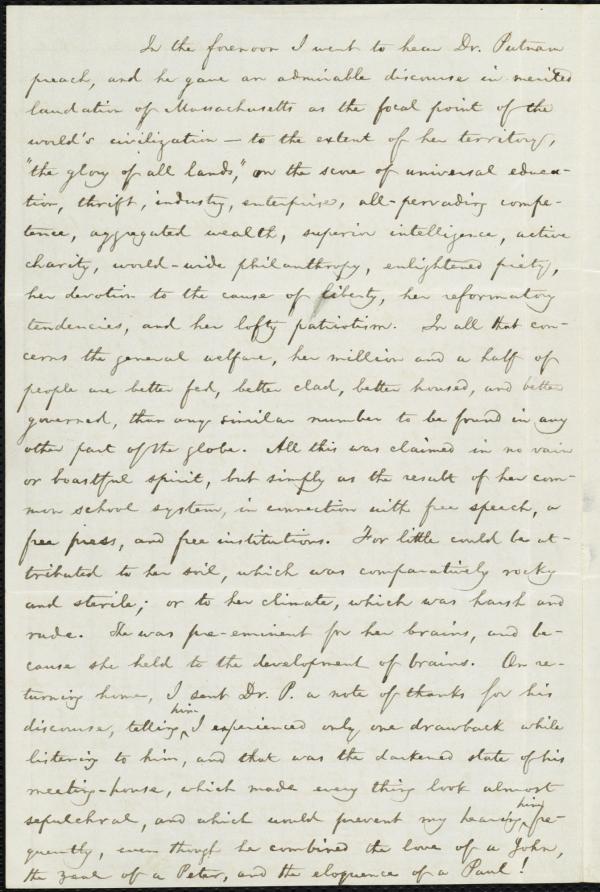 In the forenoon I went to hear Dr. Putnam
preach, and he gave an admirable discourse in merited
laudation of Massachusetts as the focal point of the
world's civilization — to the extent of her territory,
"the glory of all lands," on the score of universal educa-
tion, thrift, industry, enterprise, all-pervading compe-
tence, aggregated wealth, superior intelligence, active
charity, world-wide philanthropy, enlightened piety,
her devotion to the cause of liberty, her reformatory
tendencies, and her lofty patriotism. In all that con-
cerns the general welfare, her million and a half of
people are better fed, better clad, better housed, and better
governed, than any similar number to be found in any
other part of the globe. All this was claimed in no vain
or boastful spirit, but simply as the result of her com-
mon school system, in connection with free speech, a
free press, and free institutions. For little could be at-
tributed to her soil, which was comparatively rocky
and sterile; or to her climate, which was harsh and
rude. She was pre-eminent for her brains, and be-
cause she held to the development of brains. On re-
turning home, I sent Dr. P. a note of thanks for his
discourse, telling him I experienced only one drawback while
listening to him, and that was the darkened state of his
meeting-house, which made every thing look almost
sepulchral, and which would prevent my hearing him fre-
quently, even though he combined the love of a John,
the zeal of a Peter, and the eloquence of a Paul!